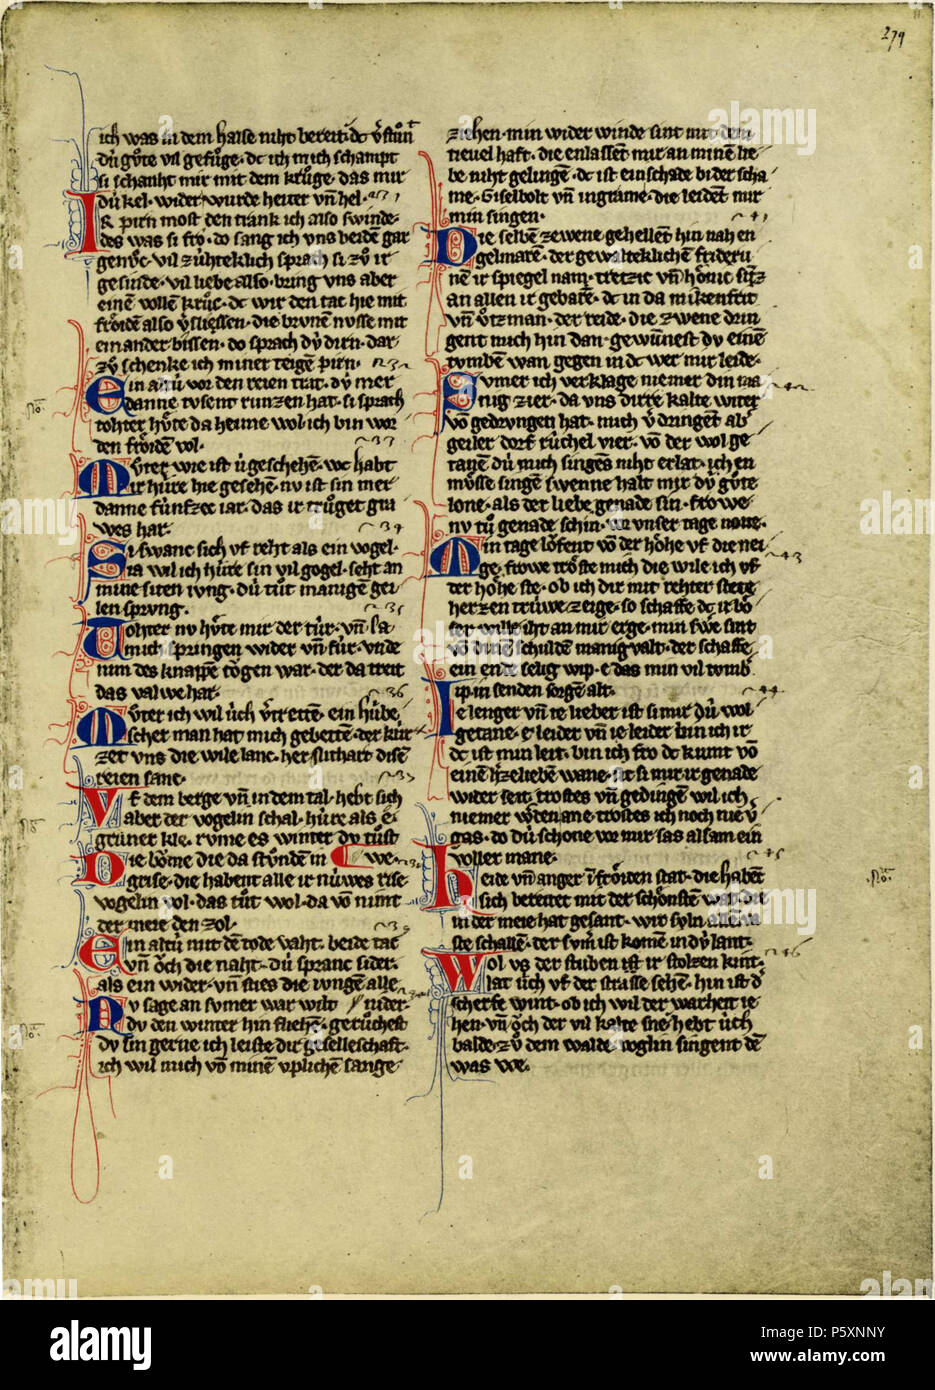 279
ich was in dem halse niht bereit· dc v̾stůnt
dú gůte vil gefůge· dc ich mich schampt
si schanht mir mit dem krůge· das mir
dú kel· wider wurde heiter vn̄ hel·
IR pirn most den trank ich also swinde·
des was si fro· do sang ich vns beiden gar
genůc· vil zúhteklich sprach si zů ir
gesinde· vil liebe also· bring vns aber
einē vollē krůc· dc wir den tac hie mit
frôidē also v̾sliessen· die brvnē nvsse mit
ein ander bissen· do sprach dv́ dirn· dar
zů schenke ich miner teigē pirn·
Ein altú vor den reien trat· dv́ mer
danne tvsent runzen hat· si sprach
tohter hv̂te da heime wol· ich bin wor
den frôidē vol·
Mv̊ter wie ist ú geschehē· wc habt
ir húre hie gesehē· nv ist sin mer
danne fúnfzec iar· das ir trůget gra
wes har·
Si swanc sich vf reht als ein vogel·
ia wil ich húre sin vil gogel· seht an
mine siten ivng· dú tůt manigē gei
len sprvng·
Tohter nv hv̂te mir der túr· vn̄ la
mich springen wider vn̄ fúr· vnde
nim des knappē tôgen war· der da treit
das valwe har·
Mv̊ter ich wil úch v̾trettē· ein húbe
scher man hat mich gebettē· der kúr
zet vns die wile lanc· her sithart disē
reien sanc·
Vf dem berge vn̄ in dem tal· hebt sich
aber der vogelin schal· húre als e·
grůner kle· rvme es winter dv tůst
we·
Die bôme die da stůnden in
grise· die habent alle ir núwes rise
vogelin vol· das tůt wol· da vō nimt
der meie den zol·
Ein altú mit dē tode vaht· beide tac
vn̄ ôch die naht· dú spranc sider·
als ein wider· vn̄ sties die ivngē alle
nider·
Nv sage an svmer war wilt
dv den winter hin fliehē· gerůchest
dv sin gerne ich leiste dir geselleschaft·
ich wil mich vō minē vplichē sange
ziehen· min wider winde sint mit dem
tieuel haft· die enlassēt mir an minē lie
be niht gelingen· dc ist ein schade bi der scha
me· Giselbolt vn̄ ingrame· die leident mir
min singen·
Die selbē zewene gehellēt hin nah en
gelmare· der gewalteklichē frideru
nē ir spiegel nam· tretzic vn̄ hônic
an allen ir gebarē· dc in da
vn̄ ůtzman· der reide· die zwene drin
gent mich hin dan· gewúnnest dv einē
tvmbē wan gegen in dc wer mir leide·
Svmer ich verklage niemer din ma
nig zier· da vns dirre kalte winter
vō gedrvngen hat· mich v̾dringent ab
geiler dorf růchel vier· vō der wol ge
tanē dú mich singēs niht erlat· ich en
mv̂sse singē swenne habt mir dv́ gůte
lone· als der liebe genade sin· frowe
nv tů genade schin· vnser tage
Min tage lôfent vō der hôhe vf die nei
ge· frowe trôste mich die wile ich vf
der hôhe ste· ob ich dir mit rehter stete
herzen trúwe zeige· so schaffe dc ir bô
ser wille iht an mir erge· min sint
vō dinē schuldē manigvalt· der schaffe
ein ende selig wip· e das min vil tvmb̾
lip· in senden sorgē alt·
Ie lenger vn̄ ie lieber ist si mir dú wol
getane· e leider vn̄ ie leider bin ich ir
dc ist min leit· bin ich fro dc kumt vō
einē h̾zeliebē wane· ist si mir ir genade
wider seit· trostes vn̄ gedingen wil ich
niemer w̾den ane· trostes ich noch nie v̾
gas· do dú schone we mir sas alsam ein
voller mane·
Heide vn̄ anger ī frôiden stat· die habēt
sich bereitet mit der schônsten wat· die
in der meie hat gesant· wir svln allē
ste schallē· der svm̄ ist komē in dv́ lant·
Wol vs der stuben ir stolzen kint·
lat úch vf der strasse sehē· hin ist d̾
scherfe wint· ob ich wil der warheit ie
hen· vn̄ ôch der vil kalte sne· hebt úch
balde· zů dem walde· voglin singent dē
was we·
alamy
Image ID: P5XNNY
www.alamy.com